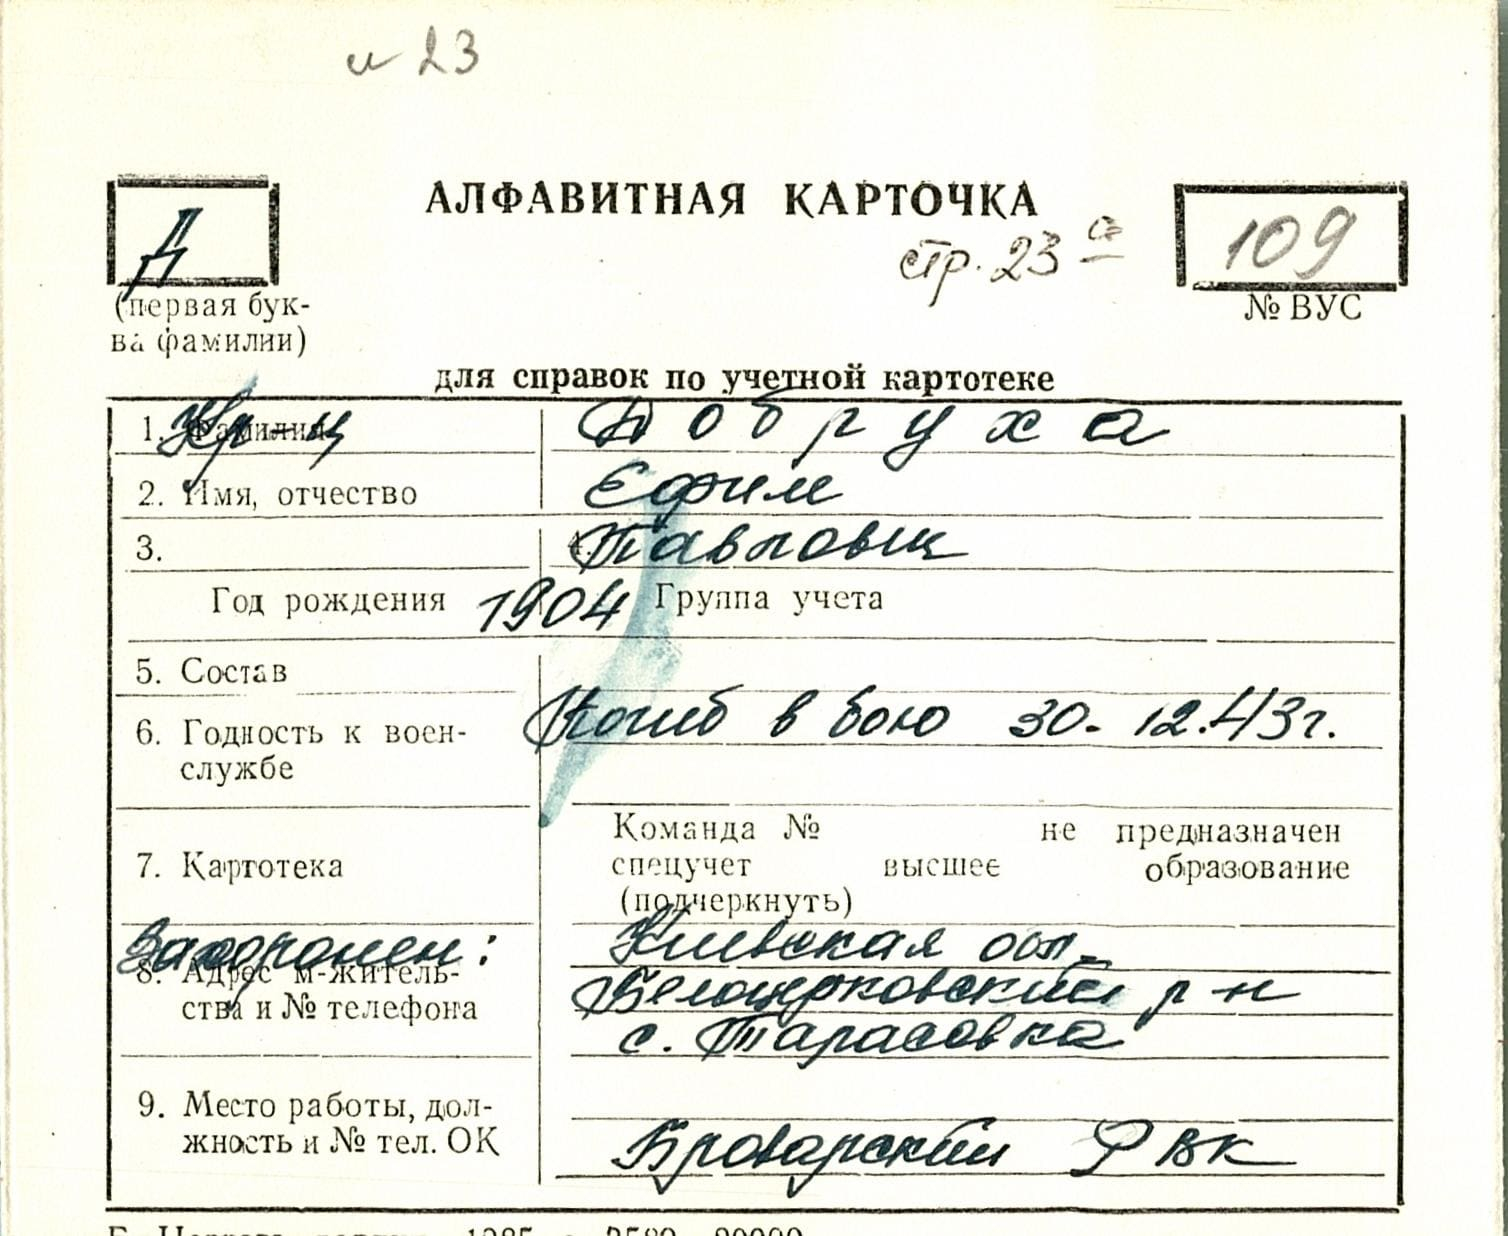 и 23
АЛФАВИТНАЯ КАРТОЧКА
Д
стр. 23
109
(первая бук-
ва фамилии)
№ ВУС
для справок по учетной картотеке
1. Фамилия
Кр-ц
Добруха
2. Имя, отчество
Ефим
3.
4.
Павлович
Год рождения 1904 Группа учета
5. Состав
6. Годность к воен-
службе
Погиб в бою 30.12.43г.
7. Картотека
Команда № не предназначен
спецучет высшее образование
(подчеркнуть)
Захоронен:
8. Адрес м-житель-
ства и № телефона
Киевская обл.
Белоцерковский р-н
с. Тарасовка
9. Место работы, дол-
жность и № тел. ОК
Броварский РВК
1985 г. 3589 20000